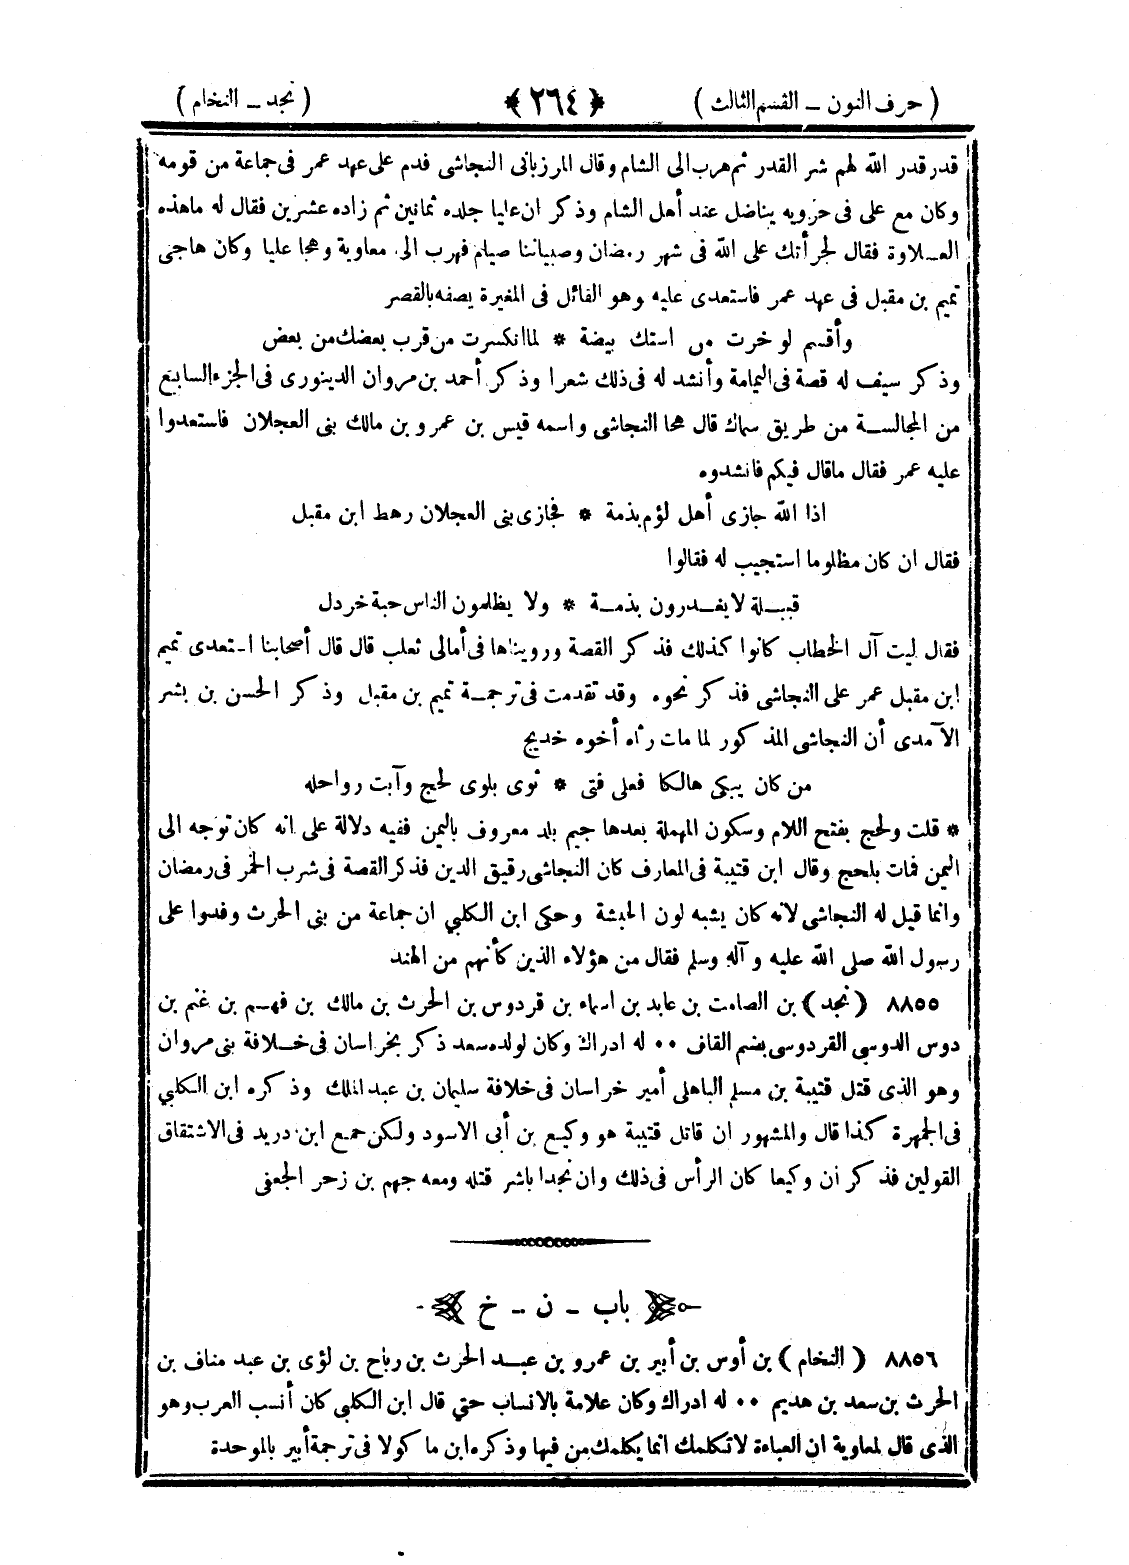 ( حرف النون ــ القسم الثالث )
﴿ ٢٦٤ ﴾
( نجد ــ النخام )
قدر قدر الله لهم شر القدر ثم هرب الى الشام وقال المرزبانى النجاشى قدم على عهد عمر فى جماعة من قومه
وكان مع على فى حزوبه يناضل عنه أهل الشام وذكر ان عليا جلده ثمانين ثم زاده عشرين فقال له ماهذه
العلاوة فقال لجرأتك على الله فى شهر رمضان وصبياننا صيام فهرب الى معاوية وهجا عليا وكان هاجى
تميم بن مقبل فى عهد عمر فاستعدى عليه وهو القائل فى المغيرة يصفه بالقصر
وأقسم لو خرت من استك بيضة * لما انكسرت من قرب بعضك من بعض
وذكر سيف له قصة فى اليمامة وأنشد له فى ذلك شعرا وذكر أحمد بن مروان الدينورى فى الجزء السابع
من المجالسة من طريق سماك قال هجا النجاشى واسمه قيس بن عمرو بن مالك بنى العجلان فاستعدوا
عليه عمر فقال ماقال فيكم فانشدوه
اذا الله جازى أهل لؤم بذمة * فجازى بنى العجلان رهط ابن مقبل
فقال ان كان مظلوما استجيب له فقالوا
قبيلة لا يغدرون بذمة * ولا يظلمون الناس حبة خردل
فقال ليت آل الخطاب كانوا كذلك فذكر القصة ورويناها فى أمالى ثعلب قال قال أصحابنا استعدى تميم
ابن مقبل عمر على النجاشى فذكر نحوه وقد تقدمت فى ترجمة تميم بن مقبل وذكر الحسن بن بشر
الآمدى أن النجاشى المذكور لما مات رثاه أخوه خديج
من كان يبكى هالكا فعلى فتى * ثوى بلوى لحج وآبت رواحله
* قلت ولحج بفتح اللام وسكون المهملة بعدها جيم بلد معروف باليمن ففيه دلالة على انه كان توجه الى
اليمن فمات بلحج وقال ابن قتيبة فى المعارف كان النجاشى رقيق الدين فذكر القصة فى شرب الخمر فى رمضان
وانما قيل له النجاشى لانه كان يشبه لون الحبشة وحكى ابن الكلبي ان جماعة من بنى الحرث وفدوا على
رسول الله صلى الله عليه وآله وسلم فقال من هؤلاء الذين كأنهم من الهند
٨٨٥٥ (نجد) بن الصامت بن عابد بن اسماء بن قردوس بن الحرث بن مالك بن فهم بن غنم بن
دوس الدوسى القردوسى بضم القاف ۰۰ له ادراك وكان لولده سعد ذكر بخراسان فى خلافة بنى مروان
وهو الذى قتل قتيبة بن مسلم الباهلى أمير خراسان فى خلافة سليمان بن عبد الملك وذكره ابن الكلبي
فى الجمهرة كذا قال والمشهور ان قاتل قتيبة هو وكيع بن أبى الاسود ولكن جمع ابن دريد فى الاشتقاق
القولين فذكر أن وكيعا كان الرأس فى ذلك وان نجدا باشر قتله ومعه جهم بن زحر الجعفى
باب ــ ن ــ خ
٨٨٥٦ (النخام) بن أوس بن أبير بن عمرو بن عبد الحرث بن رباح بن لؤى بن عبد مناف بن
الحرث بن سعد بن هديم ۰۰ له ادراك وكان علامة بالانساب حتي قال ابن الكلبى كان أنسب العرب وهو
الذى قال لمعاوية ان العباءة لا تكلمك انما يكلمك من فيها وذكره ابن ماكولا فى ترجمة أبير بالموحدة